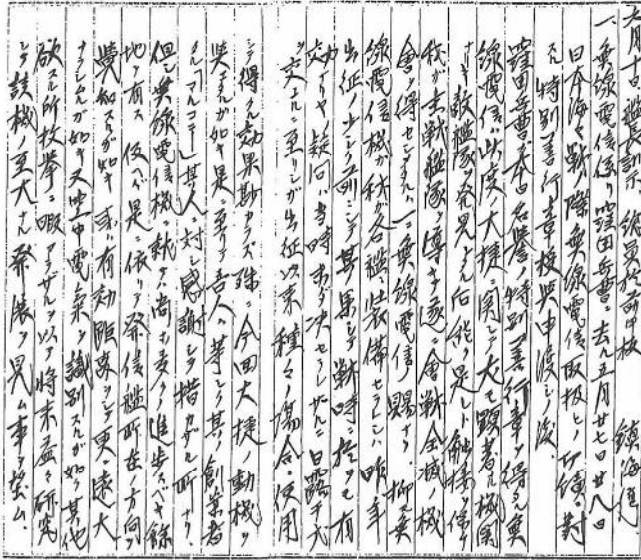 一、無線電信係リ窪田兵曹ニ去ル五月廿七日廿八日
日本海々戦ノ際無線電信取扱ヒノ功績ニ対
スル特別善行章授与申渡シノ後、
窪田兵曹ガ本日名誉ノ特別善行章ヲ得タル無
線電信ハ此度ノ大捷ニ関シテ尤モ顕著ナル機関
ナリキ敵艦隊ヲ発見スルノ后能ク是レト触接ヲ保
チ我ガ主戦艦隊ヲ導キテ遂ニ会戦全滅ノ機
会ヲ得セシメタルハ一ニ無線電信ノ賜ナリ抑モ無
線電信機ガ我ガ各艦ニ装備セラレシハ昨年
出征ノ少シク前ニシテ其果シテ戦時ニ於テモ有
効ナリヤノ疑問ハ当時未ダ決セラレザルニ日露干戈
ヲ交ユルニ至リシガ出征以来種々ノ場合ニ使用
シテ得タル効果尠カラズ殊ニ今回大捷ノ動機ヲ
与エタルガ如キ是ニ至リテ吾人ハ等シク其ノ創業者
タル「マルコニー」其人ニ対シ感謝シテ措カザル所ナリ
但シ無線電信機ハ尚ホ麦々進歩スベキ余
地ヲ有ス仮ヘバ是ニ依リテ発信艦所在ノ方向ヲ
覚知スルガ如キ或ハ有効距離ヲシテ更ニ遠大
ナラシムルガ如キ又空中電気ヲ識別スルガ如キ其他
欲スル所枚挙ニ暇アラザルヲ以テ将来益々研究
シテ該機ノ至大ナル発展ヲ見ム事ヲ望ム